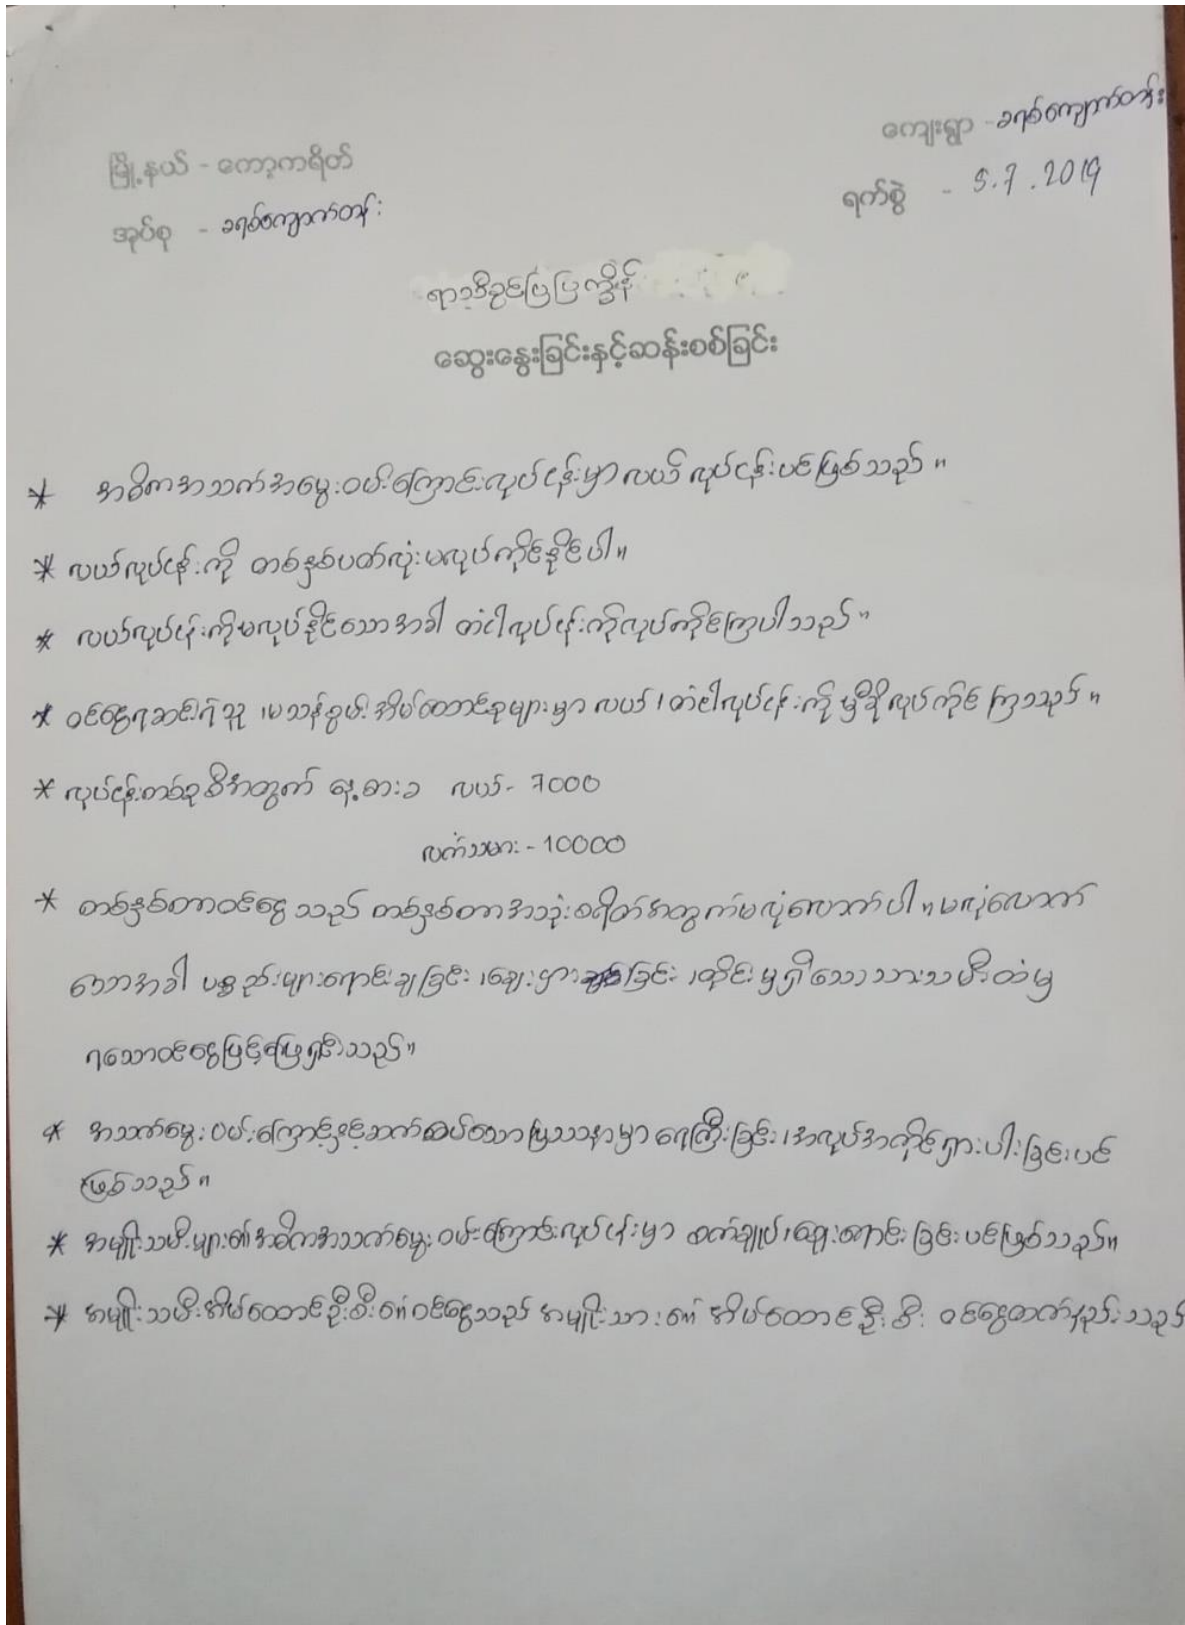 ကျေးရွာ - ခရစ်ကျောက်တန်း
မြို့နယ် - ကော့ကရိတ်
ရက်စွဲ - 5.7.2019
အုပ်စု - ခရစ်ကျောက်တန်း
ရာသီခွင်ပြပြက္ခဒိန်
ဆွေးနွေးခြင်းနှင့်ဆန်းစစ်ခြင်း
* အဓိကအသက်အမွေးဝမ်းကြောင်းလုပ်ငန်းမှာလယ်လုပ်ငန်းပင်ဖြစ်သည်။
* လယ်လုပ်ငန်းကို တစ်နှစ်ပတ်လုံးမလုပ်ကိုင်နိုင်ပါ။
* လယ်လုပ်ငန်းကိုမလုပ်နိုင်သောအခါ တံငါလုပ်ငန်းကိုလုပ်ကိုင်ကြပါသည်။
* ဝင်ငွေရဆင်းရဲသူ ၊မသန်စွမ်းအိမ်ထောင်စုများမှာ လယ်၊တံငါလုပ်ငန်းကို မှီခိုလုပ်ကိုင်ကြသည်။
* လုပ်ငန်းတစ်ခုစီအတွက် နေ့စားခ လယ် - 7000
လက်သမား - 10000
* တစ်နှစ်တာဝင်ငွေသည် တစ်နှစ်တာအသုံးစရိတ်အတွက်မလုံလောက်ပါ။မလုံလောက်
သောအခါ ပစ္စည်းများရောင်းချခြင်း ၊ချေးငှားခြင်း ၊ထိုင်းမှရှိသောသားသမီးထံမှ
ရသောဝင်ငွေဖြင့်ဖြေရှင်းသည်။
* အသက်မွေးဝမ်းကြောင့်နှင့်ဆက်စပ်သောပြဿနာမှာ ရေကြီးခြင်း၊အလုပ်အကိုင်ရှားပါးခြင်းပင်
ဖြစ်သည်။
* အမျိုးသမီးများ၏အဓိကအသက်မွေးဝမ်းကြောင်းလုပ်ငန်းမှာ စက်ချုပ်၊ဈေးရောင်းခြင်းပင်ဖြစ်သည်။
* အမျိုးသမီးအိမ်ထောင်ဦးစီး၏ဝင်ငွေသည် အမျိုးသား၏ အိမ်ထောင်ဦးစီး ဝင်ငွေထက်နည်းသည်